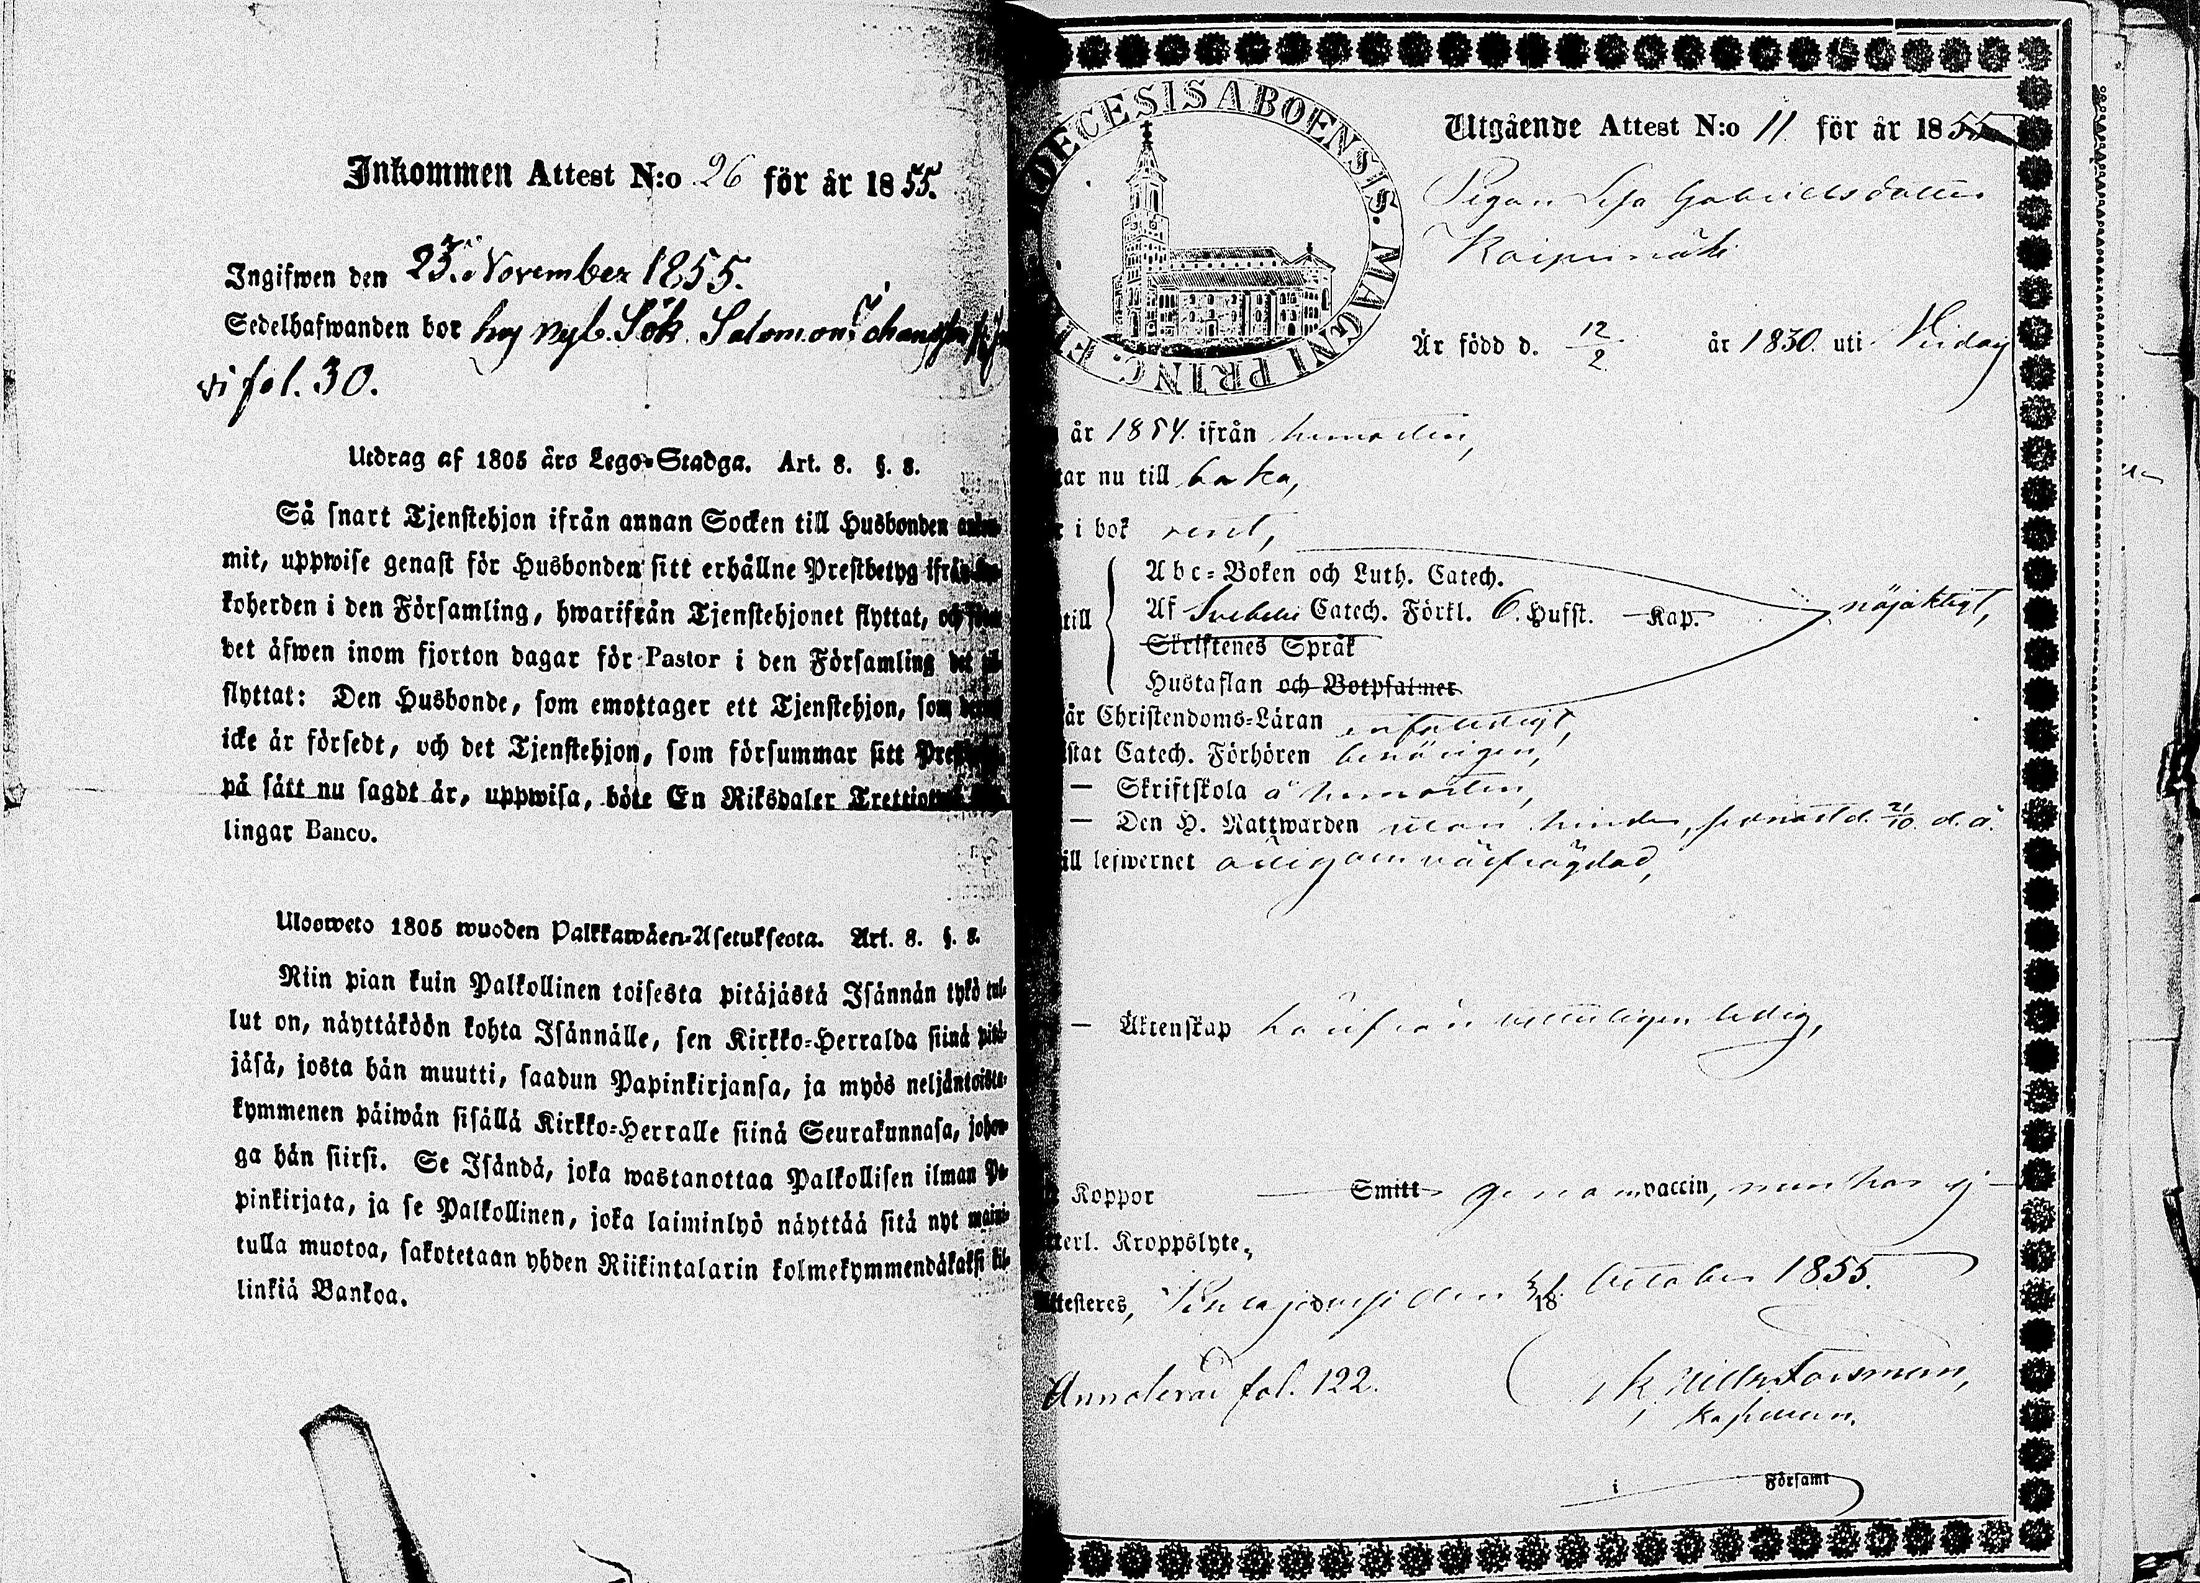 Inkommen Attest N:o 26 för år 1855.
Ingifwen den 23. November 1855.
Sedelhafwanden bor hos nyb. Sök. Salomon Johansson
vi fol. 30.
Utdrag af 1805 års Lego-Stadga. Art. 8. §. 8.
Så snart Tjenstehjon ifrån annan Socken till Husbonden
mit, uppwise genast för Husbonden sitt erhållne Prestbetyg ifrån
koherden i den Församling, hwarifrån Tjenstehjonet flyttat, och
det äfwen inom fjorton dagar för Pastor i den Församling det
flyttat: Den Husbonde, som emottager ett Tjenstehjon, som
icke är försedt, och det Tjenstehjon, som försummar sitt
på sätt nu sagdt är, uppwisa, böte En Riksdaler Trettiotwå
lingar Banco.
Ulosweto 1805 wuoden Palkkawäen-Asetuksesta. Art. 8. §. 8.
Niin pian kuin Palkollinen toisesta pitäjästä Isännän tykö tul-
lut on, näyttäköön kohta Isännälle, sen Kirkko-Herralda siinä pitä-
jäsä, josta hän muutti, saadun Papinkirjansa, ja myös neljäntoista-
kymmenen päiwän sisällä Kirkko-Herralle siinä Seurakunnasa, johon-
ga hän siirsi. Se Isändä, joka wastanottaa Palkollisen ilman Pa-
pinkirjata, ja se Palkollinen, joka laiminlyö näyttää sitä nyt maini-
tulla muotoa, sakotetaan yhden Riikintalarin kolmekymmendäkaksi kil-
linkiä Bankoa.
DECESIS ABOENSIS. MAGNI PRINC. F
Utgående Attest N:o 11 för år 1855
Pigan Lisa Gabrielsdotter
Är född d. 12/2 år 1830. uti
år 1854. ifrån hemorten,
tar nu till baka,
i bok rent,
till
Abc-Boken och Luth. Catech.
Af Svebelii Catech. Förkl. 6. Hufst. Kap. nöjaktigt,
Skriftenes Språk
Hustaflan och Botpsalmer
år Christendoms-Läran enfaldigt,
stat Catech. Förhören benägen,
— Skriftskola å hemorten,
— Den H. Nattwarden utan hinder, senast d. 21/10. d. å.
ill lefwernet oklanderligt
— Äktenskap härifrån wetterligen ledig,
Koppor Smitt genom vaccin, men har ej
terl. Kroppslyte,
ttesteres, den 31. 18 October 1855.
Annoterad fol. 122.
Forsman,
Kapellan.
i Församl